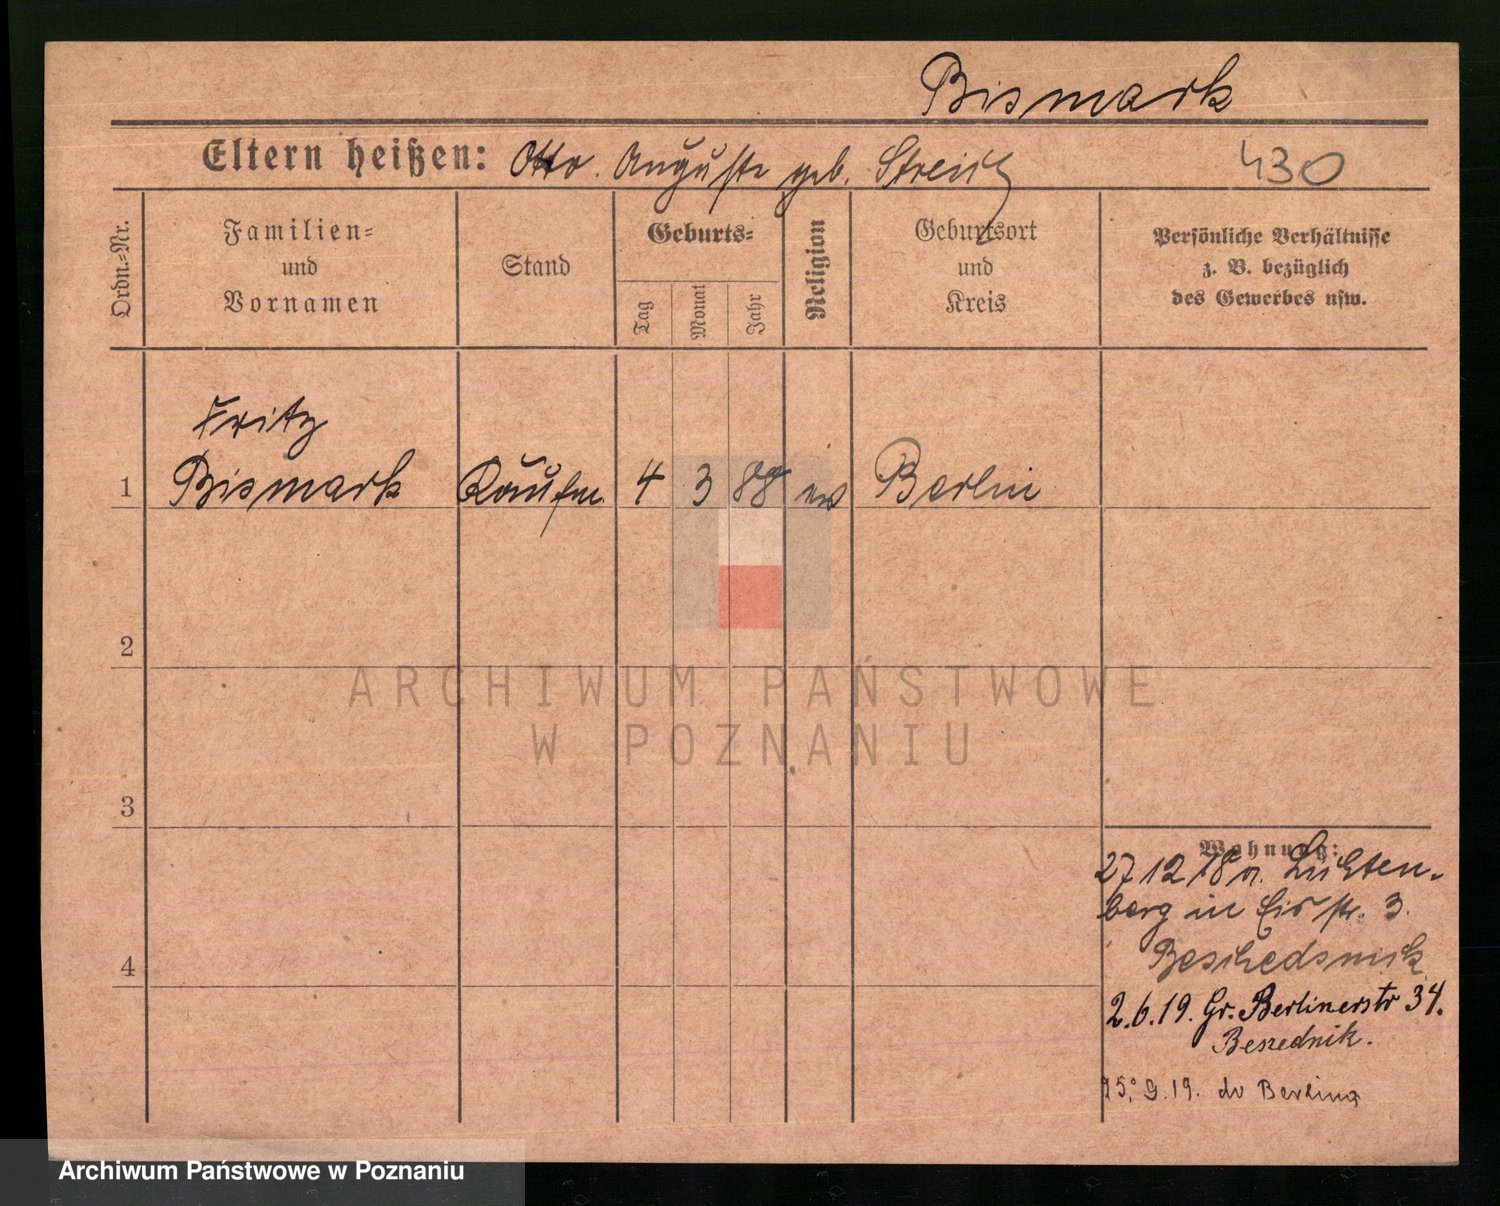 Bismark
Eltern heißen: Otto. Auguste geb. 430
Ordn.-Nr.
Familien-
und
Vornamen
Stand
Geburts-
Tag
Monat
Jahr
Religion
Geburtsort
und
Kreis
Persönliche Verhältnisse
z. B. bezüglich
des Gewerbes usw.
Fritz
1 Bismark Kaufm 4 3 88 ev Berlin
2
ARCHIWUM PAŃSTWOWE
W POZNANIU
3
Wohnung:
27 12 18 a. Lichten-
berg in str. 3.
4
2.6.19. Gr. Berlinerstr 34.
Beszednik.
25. 9. 19. do Berlina
Archiwum Państwowe w Poznaniu